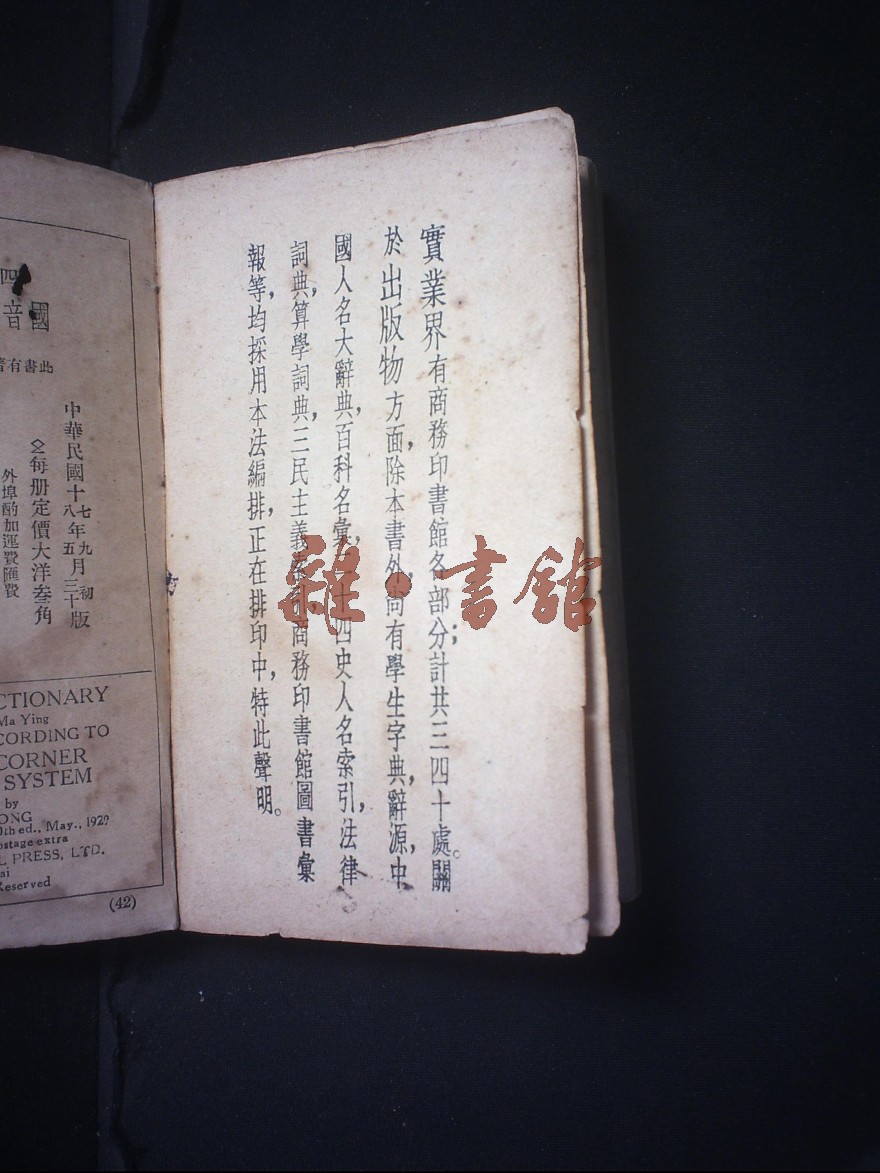 實業界有商務印書館各部分；計共三四十處。關
於出版物方面，除本書外，尚有學生字典，辭源，中
國人名大辭典，百科名彙，二十四史人名索引，法律
詞典，算學詞典，三民主義索引，商務印書館圖書彙
報等，均採用本法編排，正在排印中，特此聲明。
雜·書館
四
國音
此書有
中華民國十七年九月初版
十八年五月三十版
每册定價大洋叁角
外埠酌加運費匯費
CTIONARY
Ma Ying
CORDING TO
CORNER
SYSTEM
by
ONG
0th ed., May., 1929
ostage extra
L PRESS, LTD.
ai
Reserved
(42)